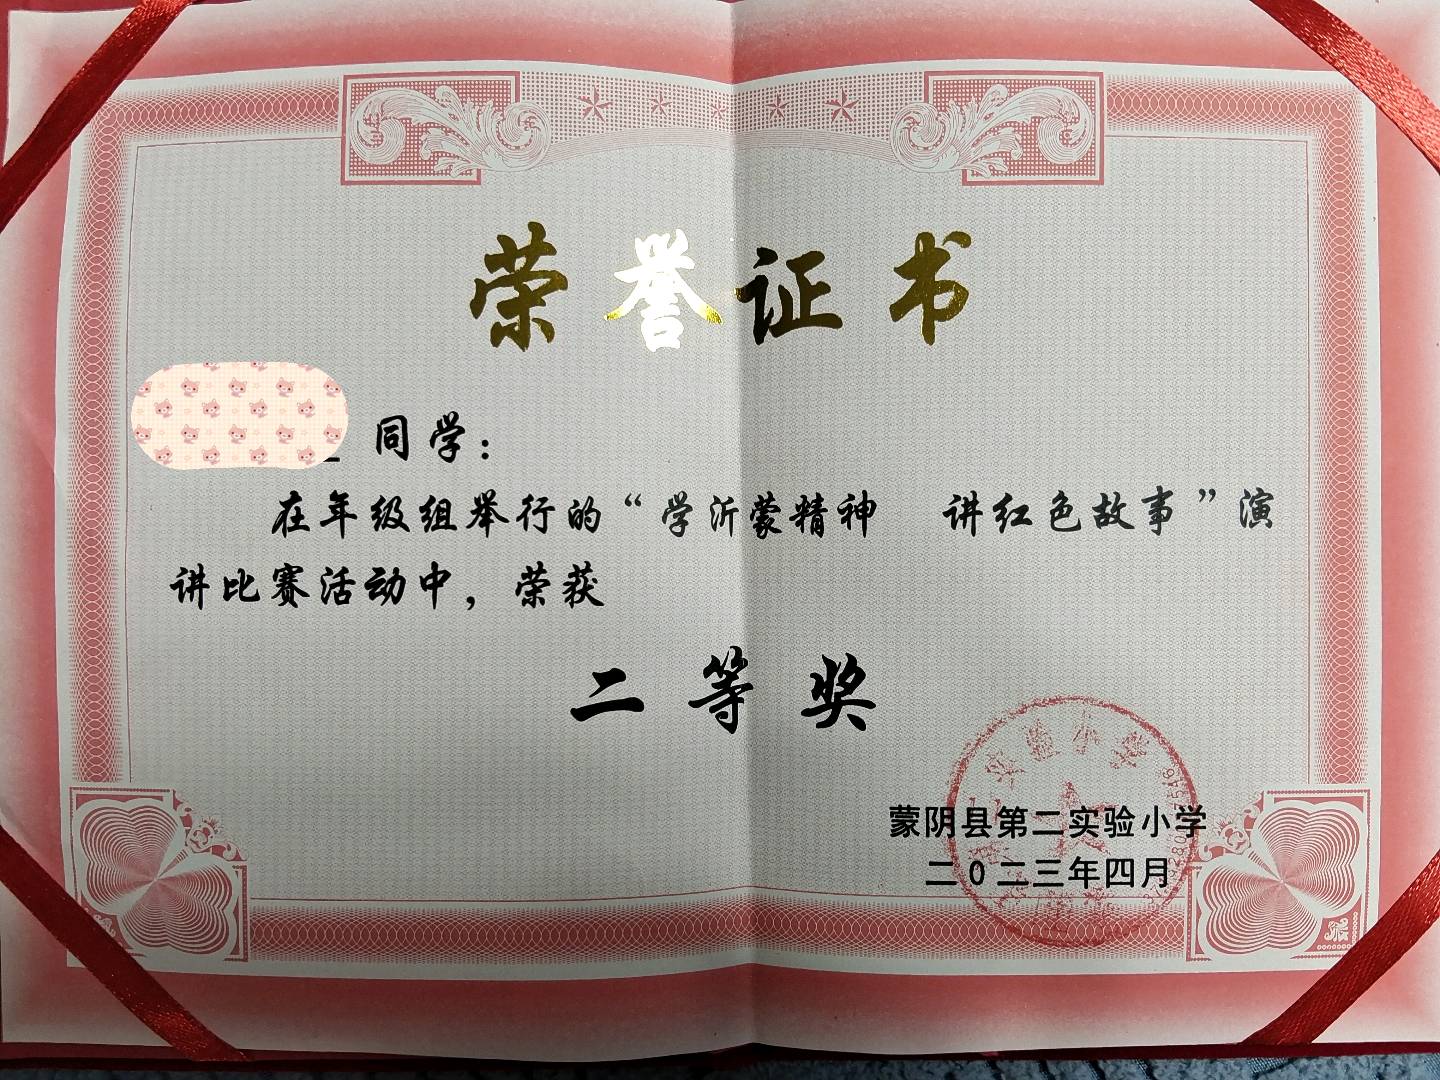 荣誉证书
同学：
在年级组举行的“学沂蒙精神　讲红色故事”演
讲比赛活动中，荣获
二等奖
蒙阴县第二实验小学
二0二三年四月